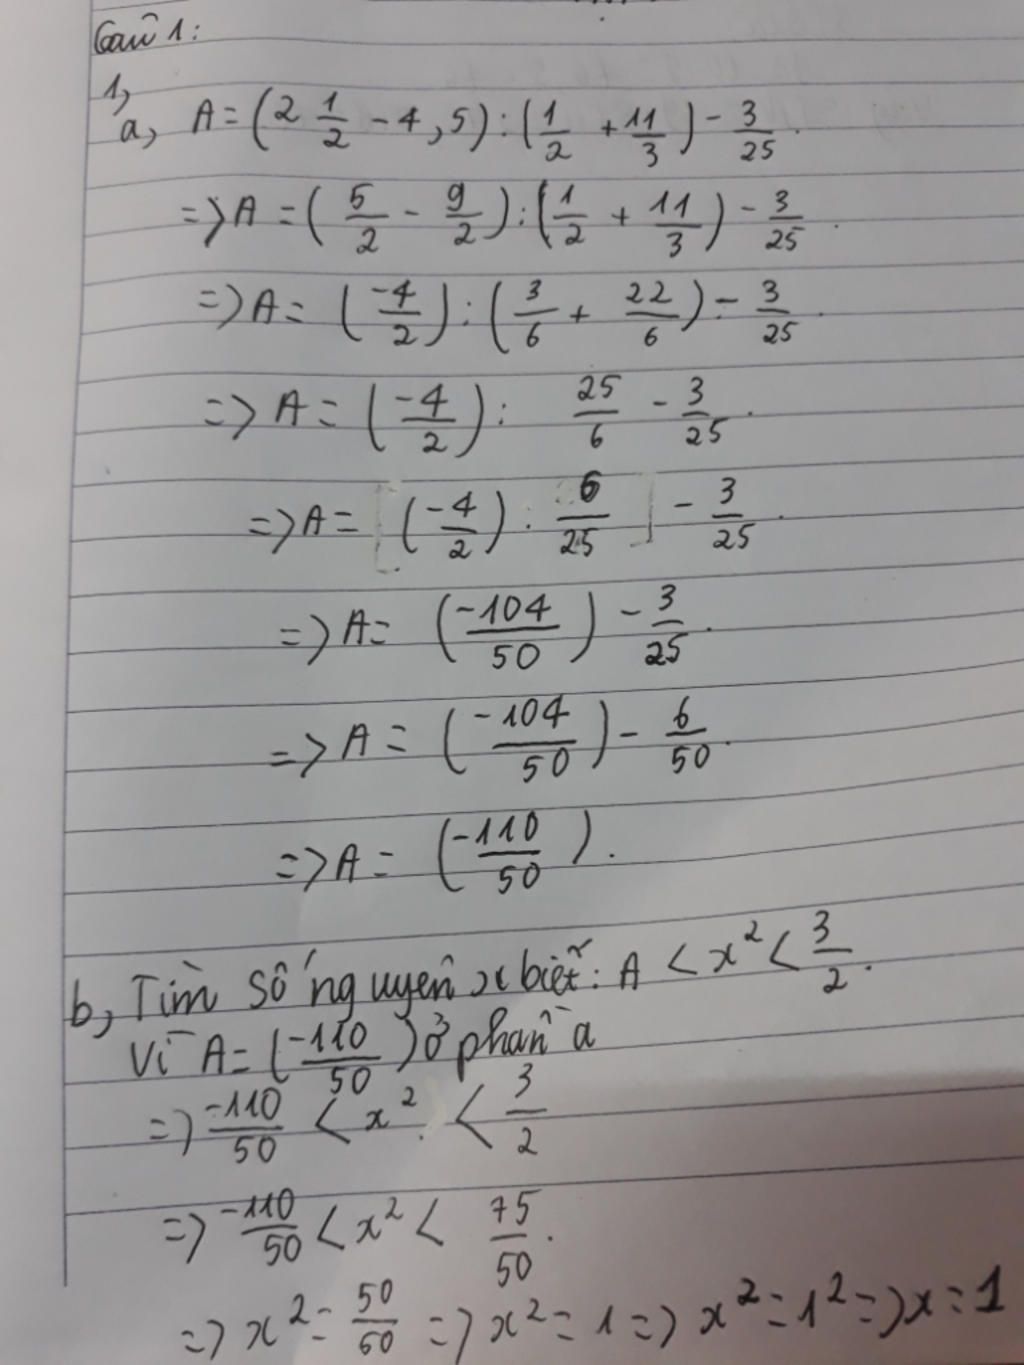 Câu 1:
1,
a, A = (2 1/2 - 4,5) : (1/2 + 11/3) - 3/25.
=> A = (5/2 - 9/2) : (1/2 + 11/3) - 3/25.
=> A = (-4/2) : (3/6 + 22/6) - 3/25.
=> A = (-4/2) : 25/6 - 3/25.
=> A = [(-4/2) . 6/25] - 3/25.
=> A = (-104/50) - 3/25.
=> A = (-104/50) - 6/50.
=> A = (-110/50).
b, Tìm số nguyên x biết: A < x² < 3/2.
Vì A = (-110/50) ở phần a
=> -110/50 < x² < 3/2
=> -110/50 < x² < 75/50.
=> x² = 50/50 => x² = 1 => x² = 1² => x = 1